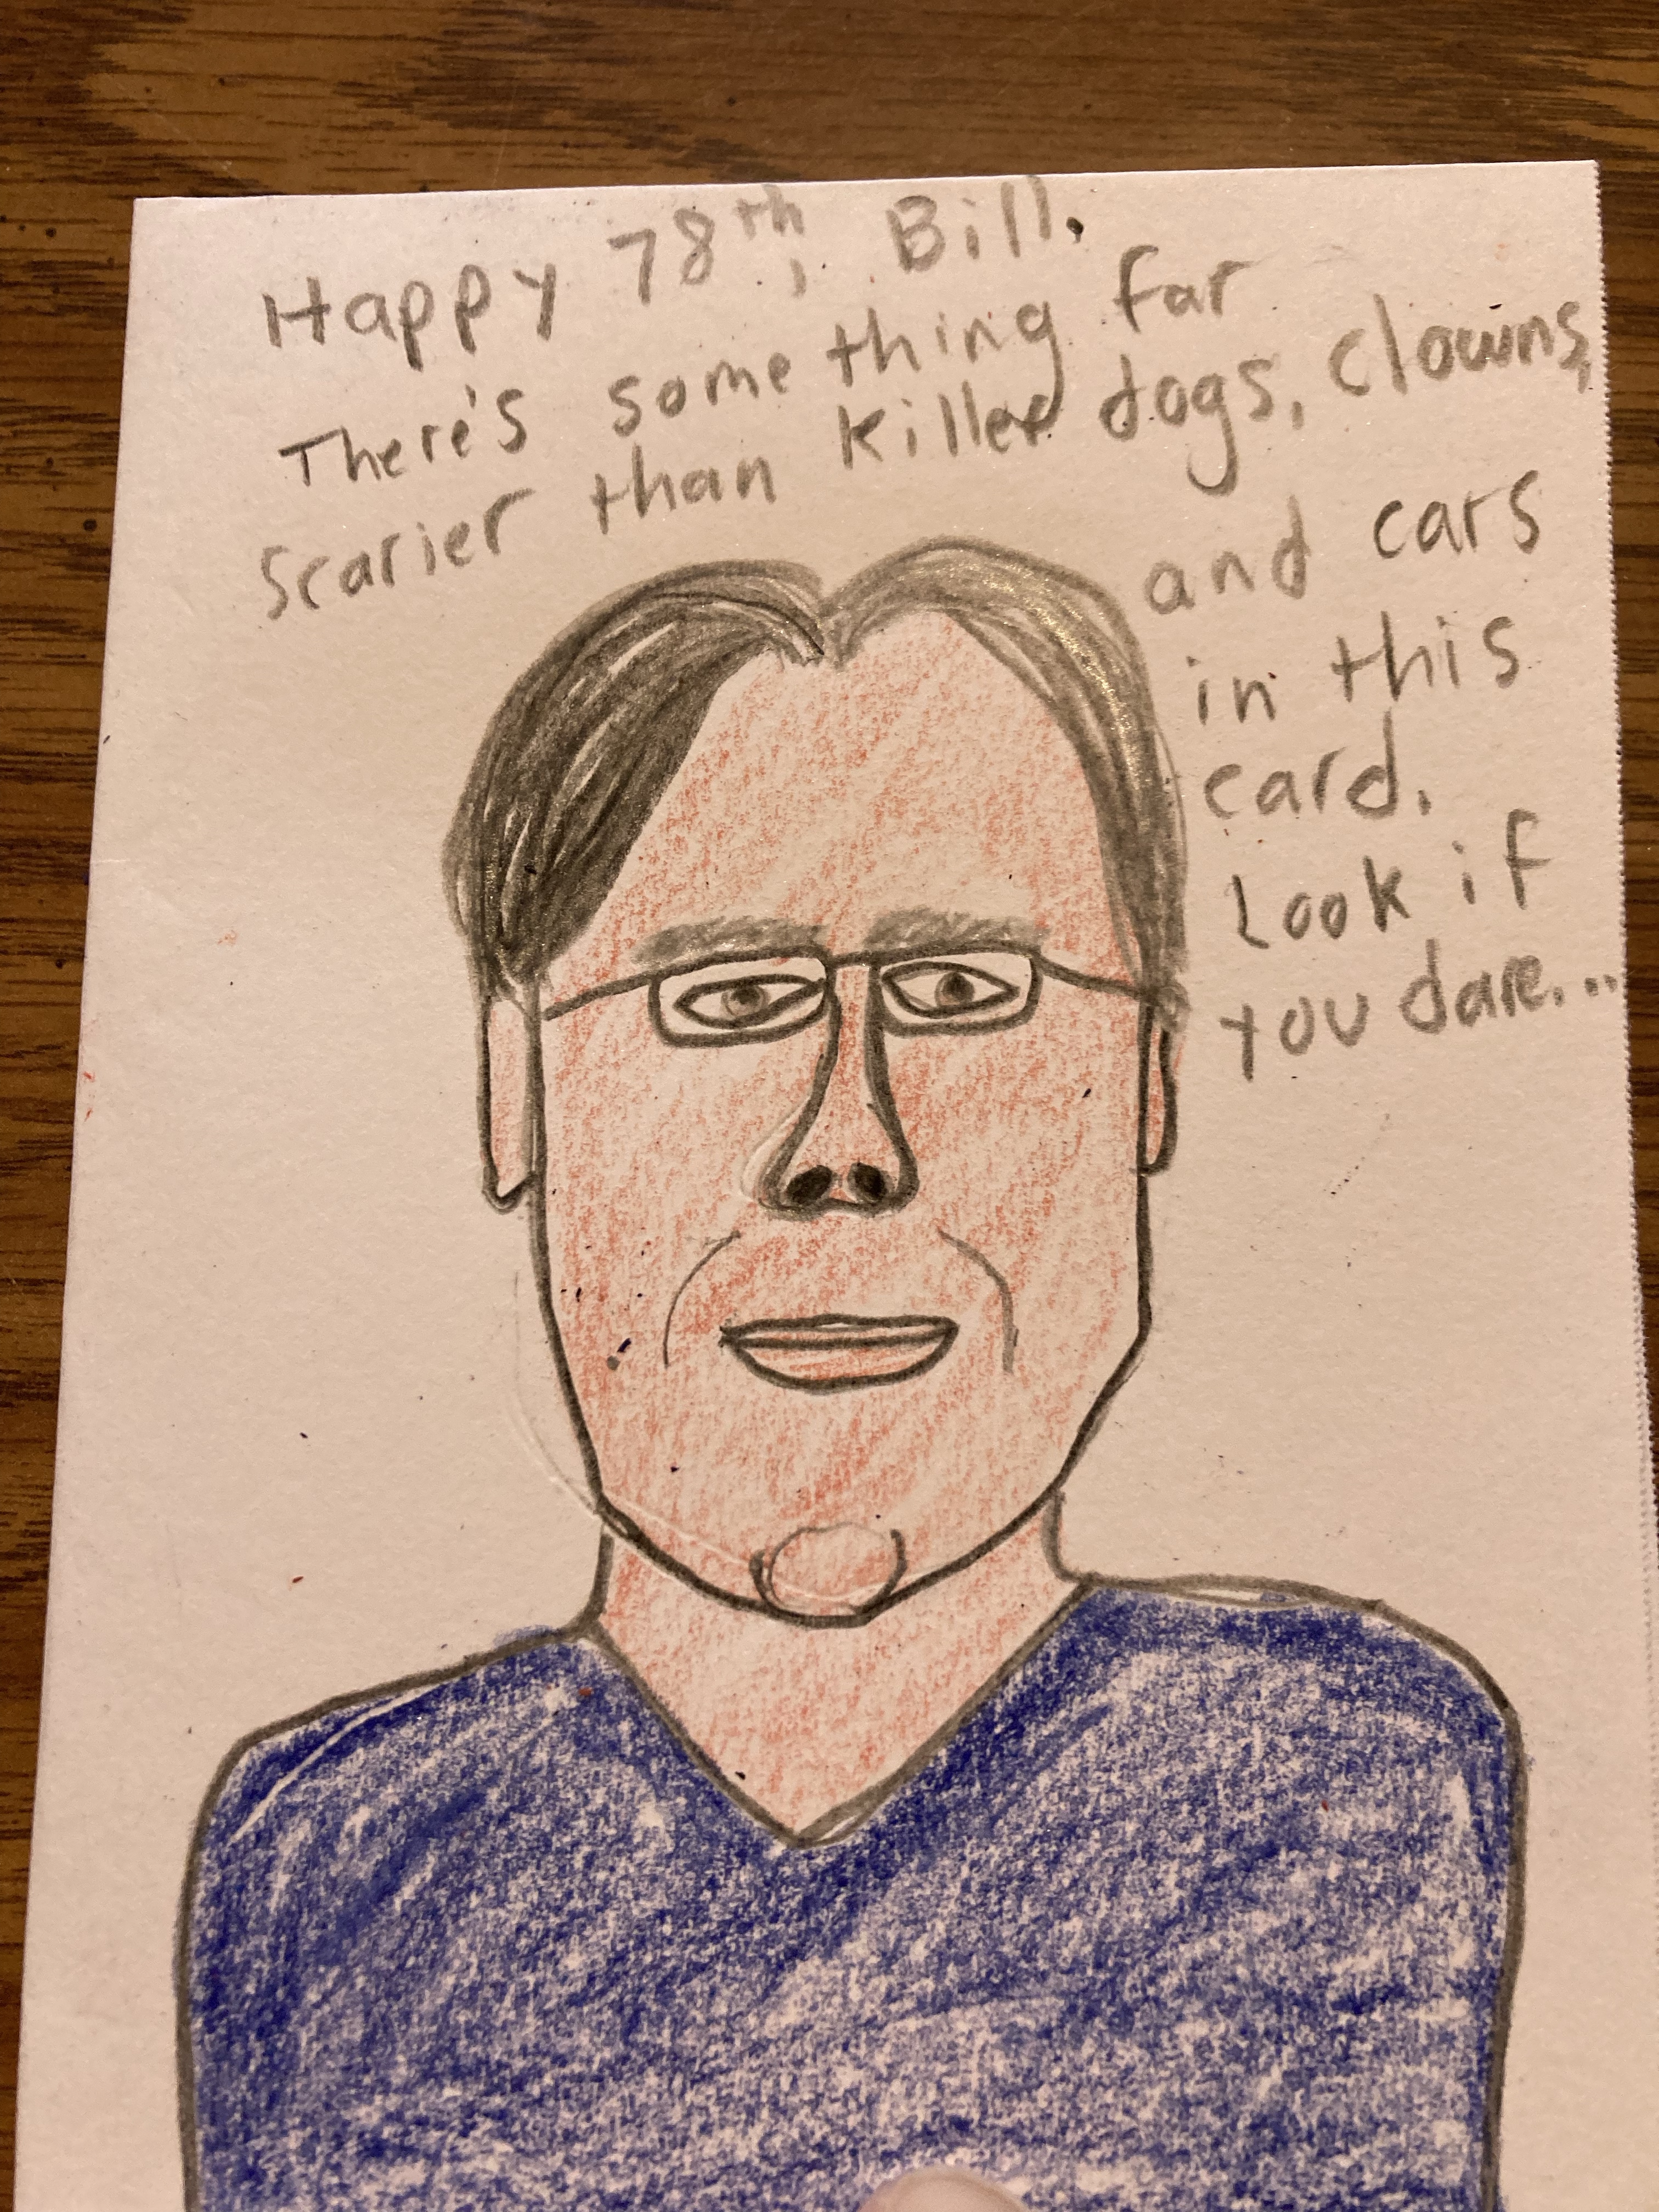 Happy 78th, Bill.
There's something far
scarier than killer dogs, clowns,
and cars
in this
card.
Look if
you dare...